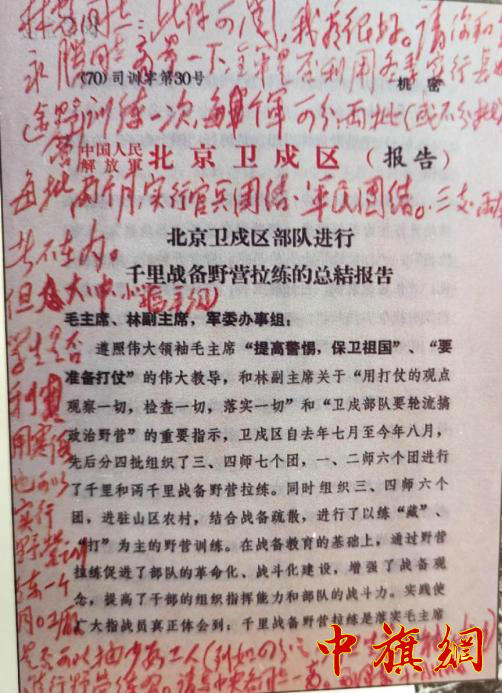 此件可阅，我看很好。请你和
永胜同志商量一下，全军是否利用冬季实行长
(70)司训字第30号
机密
途野营训练一次，每个军可分两批（或不分批）
中国人民
解放軍
北京卫戍区（报告）
每批两个月，实行官兵团结、军民团结。三支两
北京卫戍区部队进行
千里战备野营拉练的总结报告
者不在内。
但大、中、小
学生是否
利
用寒假
也可以
实行
野营训
练一个
月。工厂
毛主席、林副主席，军委办事组：
遵照伟大领袖毛主席“提高警惕，保卫祖国”、“要
准备打仗”的伟大教导，和林副主席关于“用打仗的观点
观察一切，检查一切，落实一切”和“卫戍部队要轮流搞
政治野营”的重要指示，卫戍区自去年七月至今年八月，
先后分四批组织了三、四师七个团，一、二师六个团进行
了千里和两千里战备野营拉练。同时组织三、四师六个
团，进驻山区农村，结合战备疏散，进行了以练“藏”、
“打”为主的野营训练。在战备教育的基础上，通过野营
拉练促进了部队的革命化、战斗化建设，增强了战备观
念，提高了干部的组织指挥能力和部队的战斗力。实践使
广大指战员真正体会到：千里战备野营拉练是落实毛主席
是否可以抽少数工
中旗網